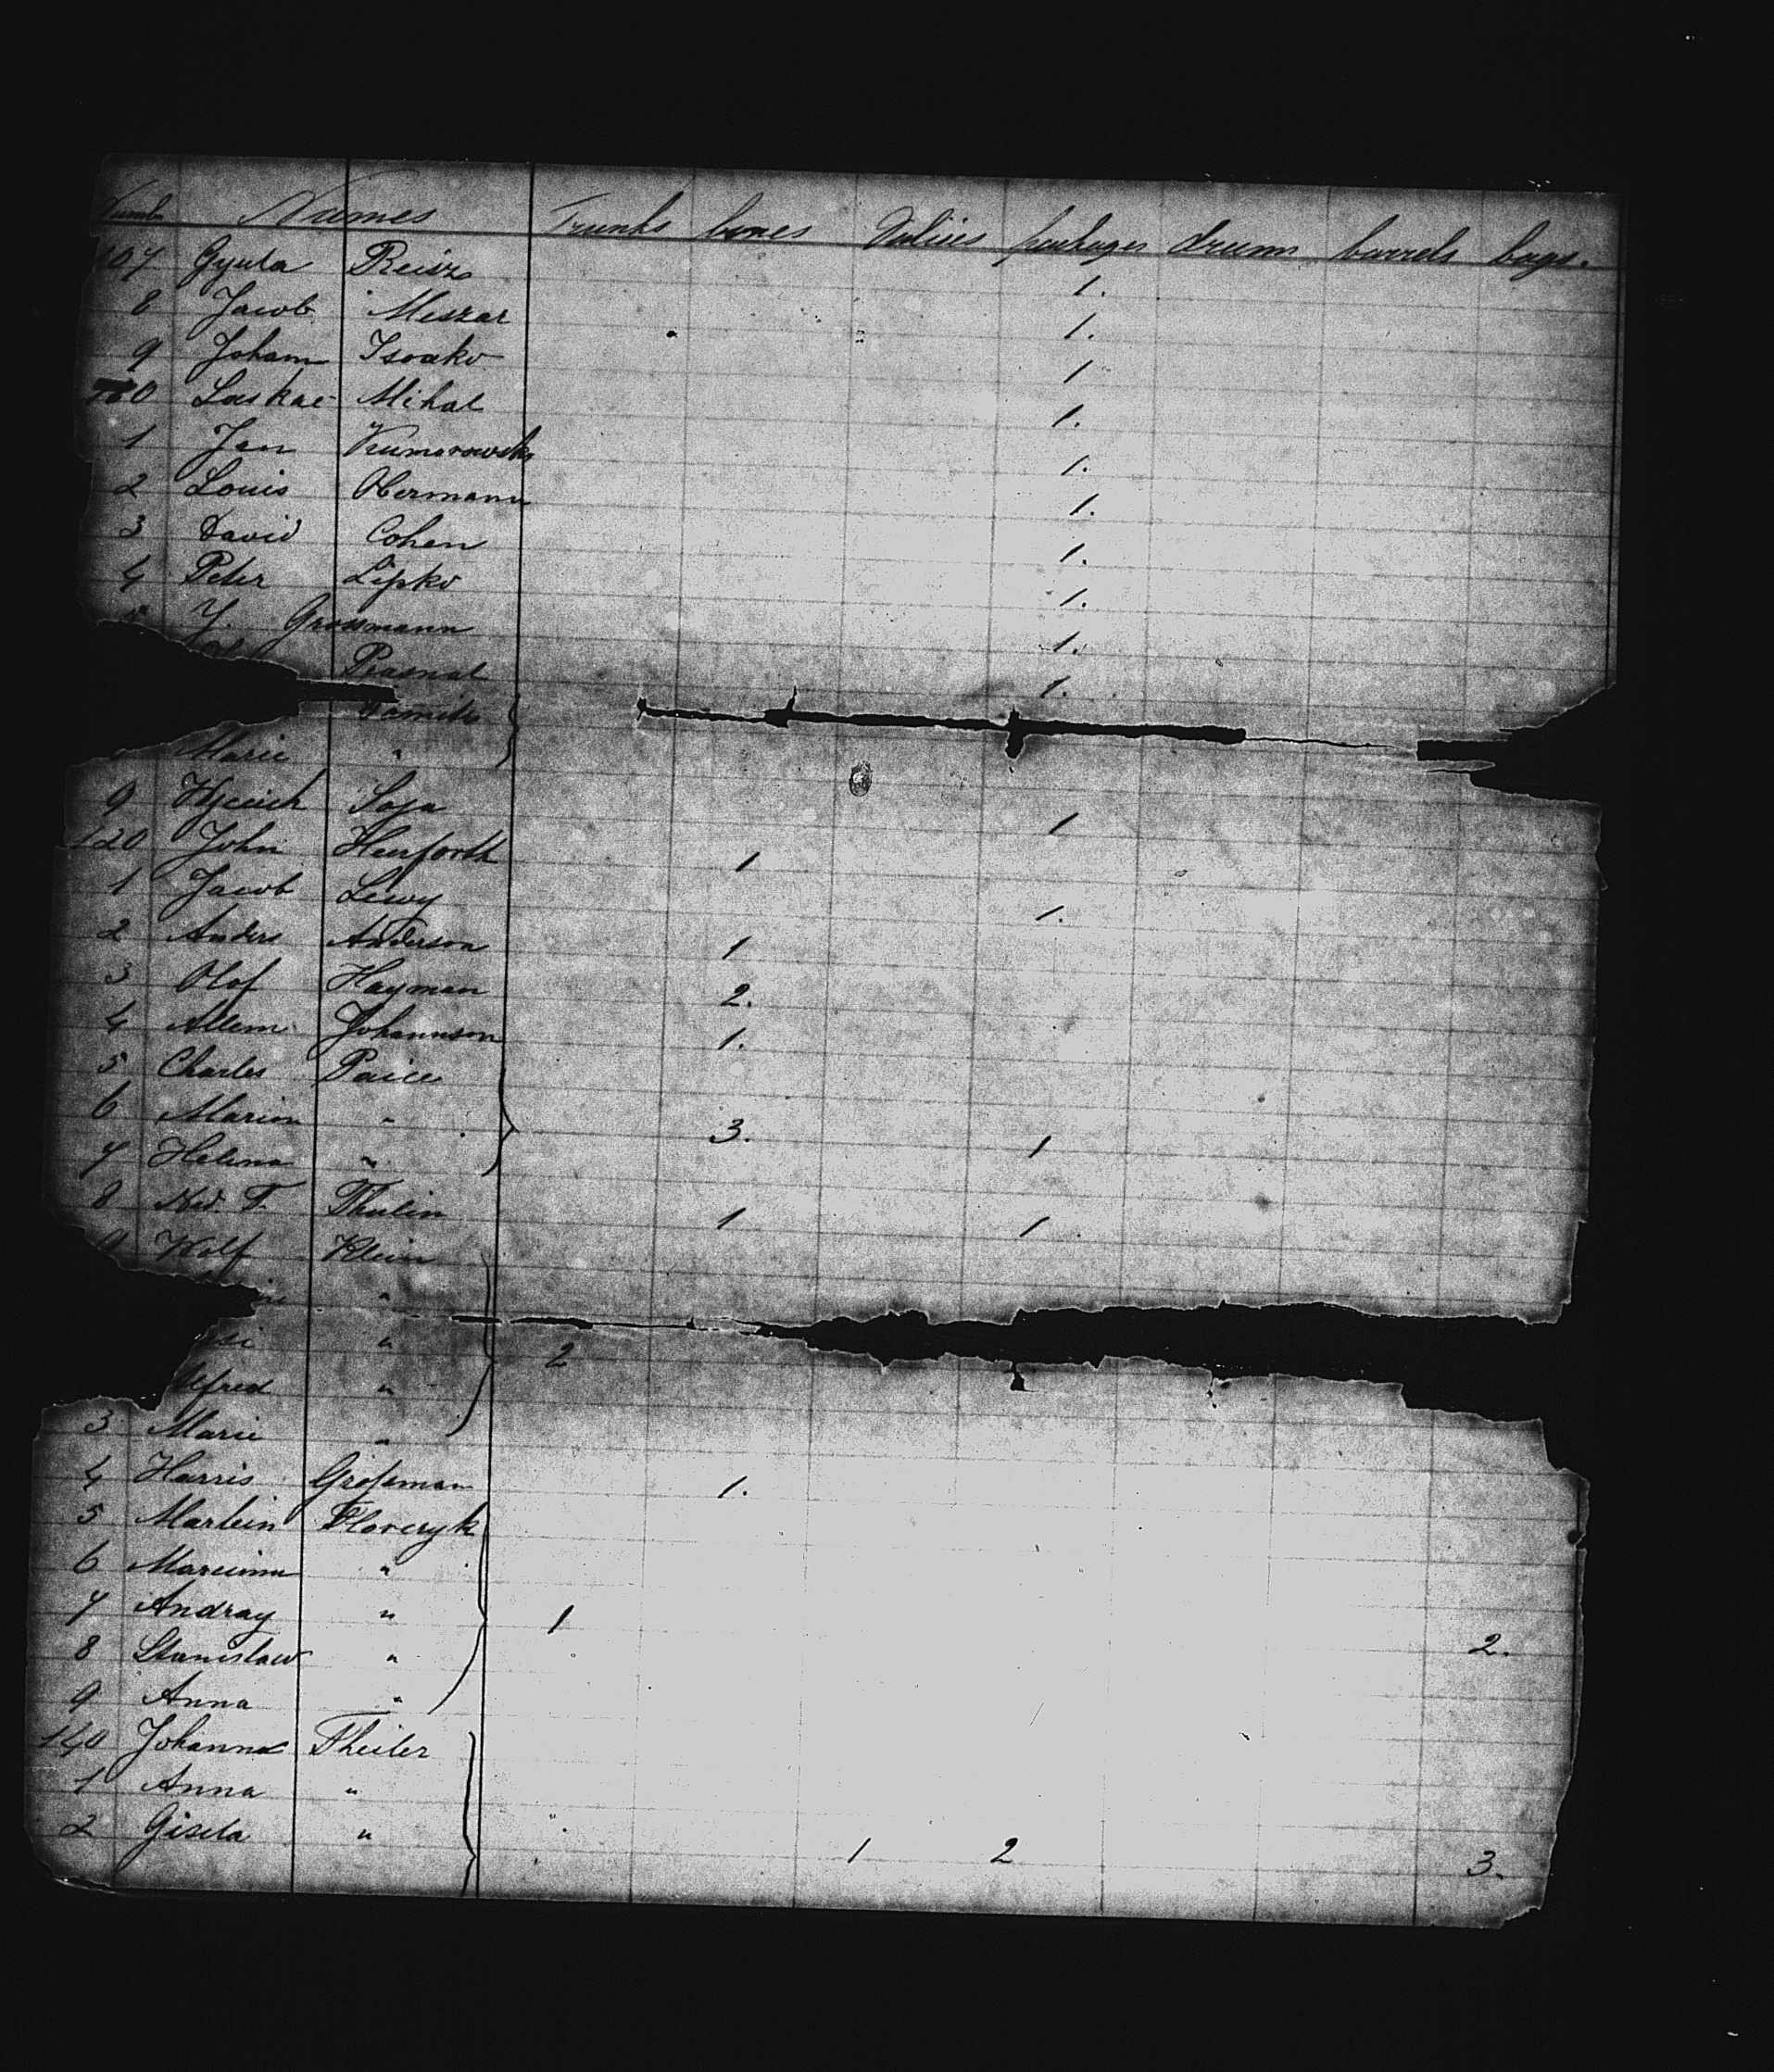 Number Names Trunks boxes Valises packages drums barrels bags.
107 Gyula Reisz 1.
8 Jacob Meszar 1.
9 Johann Isoako 1
110 Laskac Mihal 1.
1 Jan Kumorowsky 1.
2 Louis Obermann 1.
3 David Cohen 1.
4 Peter Lipko 1.
J. Grossmann 1.
Prasnal 1.
Marie "
9 Wjceich Soja 1
120 John Henforth 1
1 Jacob Lewy 1.
2 Anders Anderson 1
3 Olof Hayman 2.
4 Allem Johannson 1.
5 Charles Paice
6 Marion " 3. 1
7 Helena "
8 Ned. T. Thulin 1 1
9 Wolf Klein
"
" 2
Alfred "
3 Marie "
4 Harris Grossman 1.
5 Martin Slovcryk
6 Marcinna "
7 Andray " 1 2.
8 Stanislaw "
9 Anna "
140 Johanna Theiler
1 Anna "
2 Gisela " 1 2 3.